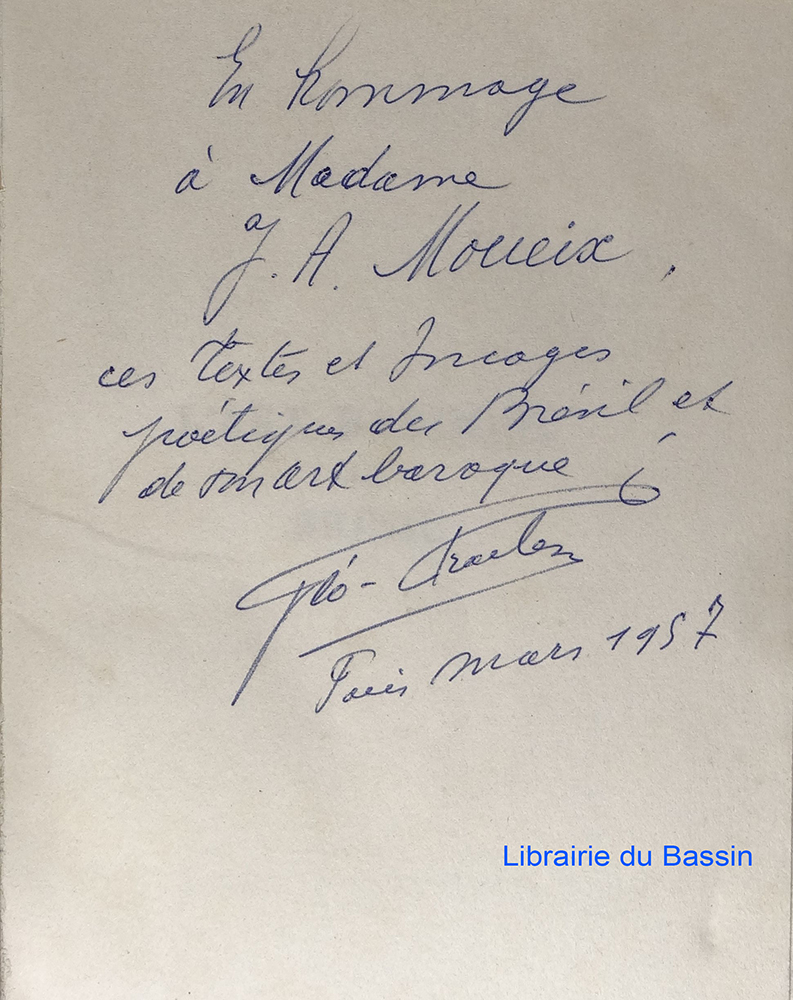 En hommage
à Madame
J. A. Moueix,
ces textes et Images
poétiques du Brésil et
de son art baroque
Géo-Charles
Paris mars 1957
Librairie du Bassin